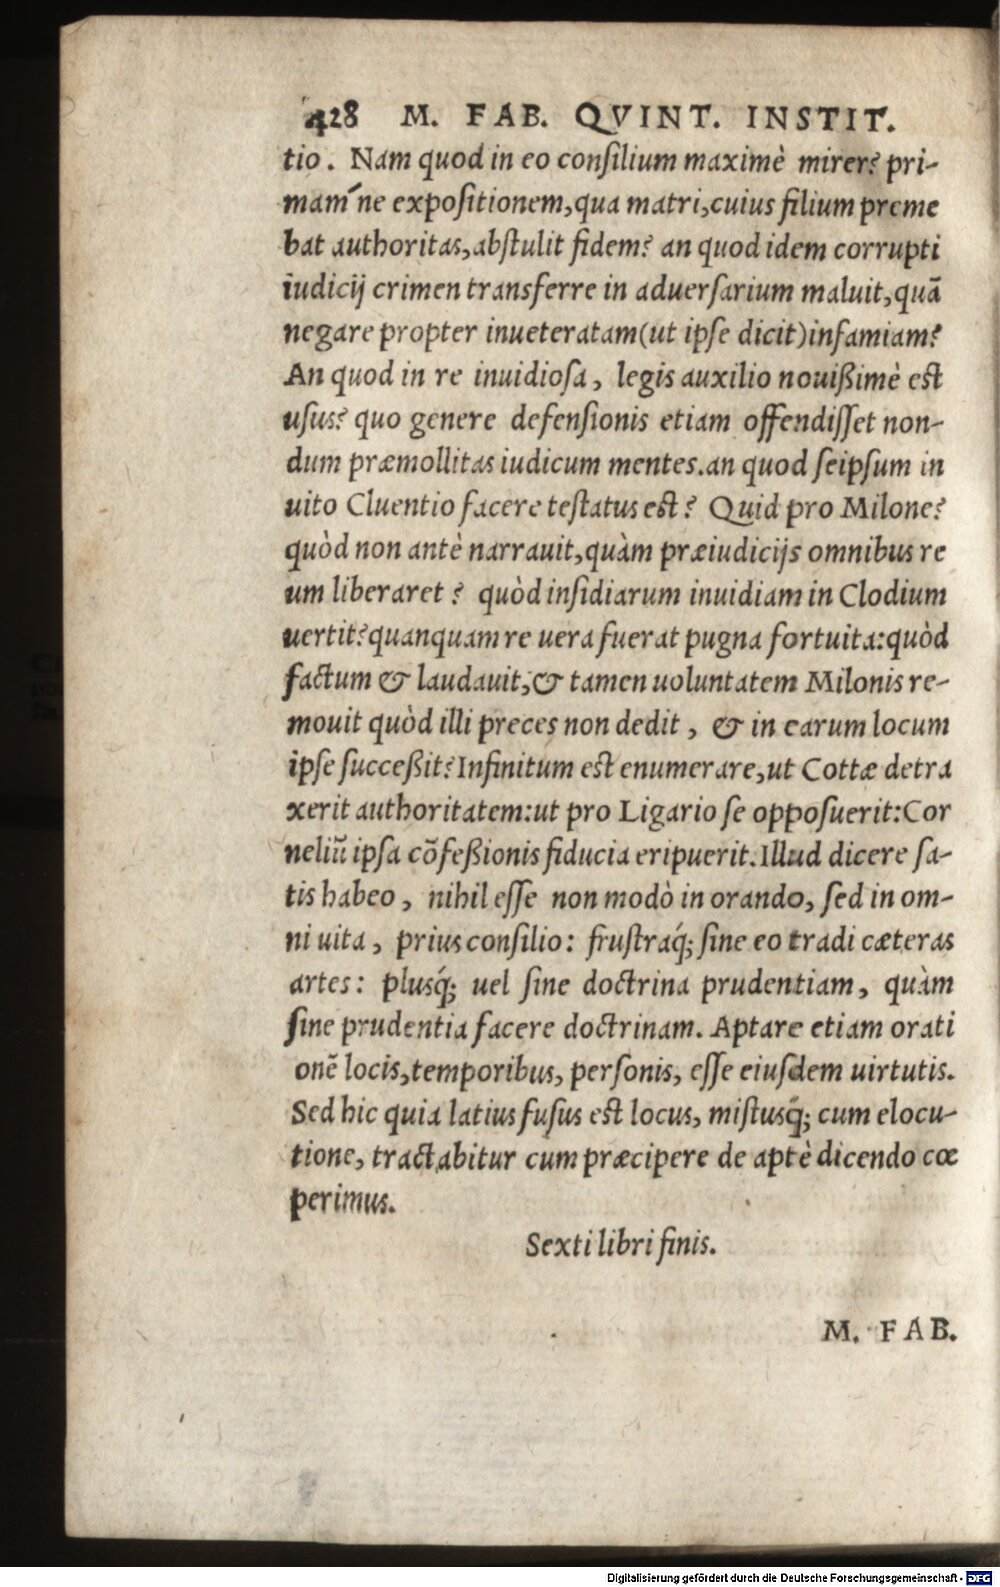 428 M. FAB. QVINT. INSTIT.
tio. Nam quod in eo consilium maximè mirer? pri-
mam´ne expositionem, qua matri, cuius filium preme
bat authoritas, abstulit fidem? an quod idem corrupti
iudicij crimen transferre in aduersarium maluit, quā
negare propter inueteratam (ut ipse dicit) infamiam?
An quod in re inuidiosa, legis auxilio nouißimè est
usus? quo genere defensionis etiam offendisset non-
dum præmollitas iudicum mentes. an quod seipsum in
uito Cluentio facere testatus est? Quid pro Milone?
quòd non antè narrauit, quàm præiudicijs omnibus re
um liberaret? quòd insidiarum inuidiam in Clodium
uertit? quanquam re uera fuerat pugna fortuita: quòd
factum & laudauit, & tamen uoluntatem Milonis re-
mouit quòd illi preces non dedit, & in earum locum
ipse succeßit? Infinitum est enumerare, ut Cottæ detra
xerit authoritatem: ut pro Ligario se opposuerit: Cor
neliū ipsa cōfeßionis fiducia eripuerit. Illud dicere sa-
tis habeo, nihil esse non modò in orando, sed in om-
ni uita, prius consilio: frustraq́; sine eo tradi cæteras
artes: plusq́; uel sine doctrina prudentiam, quàm
sine prudentia facere doctrinam. Aptare etiam orati
onē locis, temporibus, personis, esse eiusdem uirtutis.
Sed hic quia latius fusus est locus, mistusq́; cum elocu-
tione, tractabitur cum præcipere de aptè dicendo cœ
perimus.
Sexti libri finis.
M. FAB.
Digitalisierung gefördert durch die Deutsche Forschungsgemeinschaft - DFG